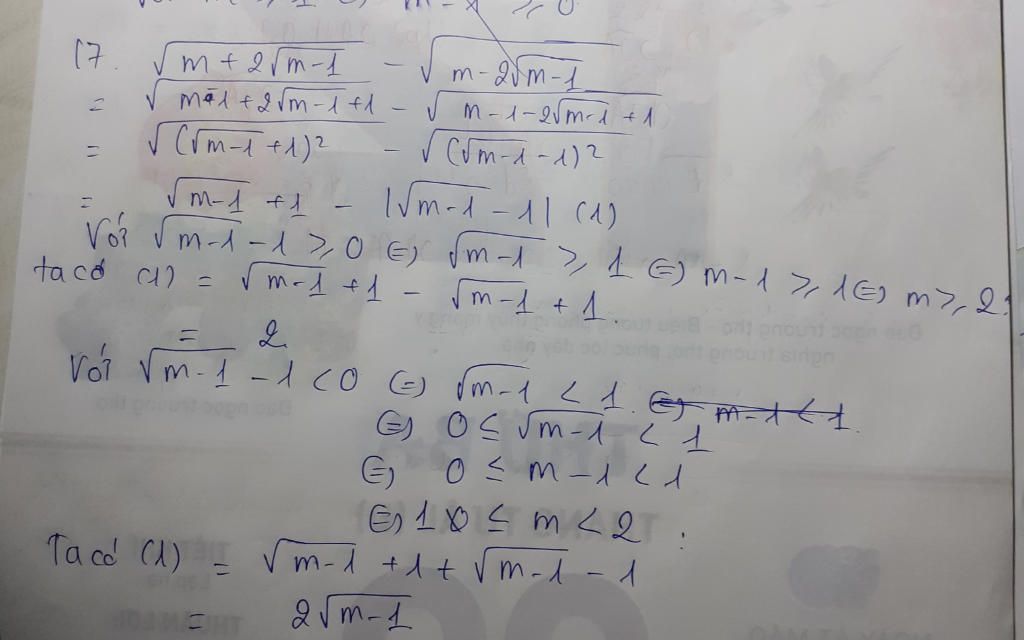 17. √(m + 2√(m-1)) - √(m - 2√(m-1))
= √(m-1 + 2√(m-1) + 1) - √(m - 1 - 2√(m-1) + 1)
= √((√(m-1) + 1)²) - √((√(m-1) - 1)²)
= √(m-1) + 1 - |√(m-1) - 1| (1)
Với √(m-1) - 1 ≥ 0 (=) √(m-1) ≥ 1 (=) m - 1 ≥ 1 (=) m ≥ 2:
ta có (1) = √(m-1) + 1 - √(m-1) + 1
= 2
Với √(m-1) - 1 < 0 (=) √(m-1) < 1. (=) m-1 < 1.
(=) 0 ≤ √(m-1) < 1
(=) 0 ≤ m - 1 < 1
(=) 1 ≤ m < 2 :
Ta có (1) = √(m-1) + 1 + √(m-1) - 1
= 2√(m-1)